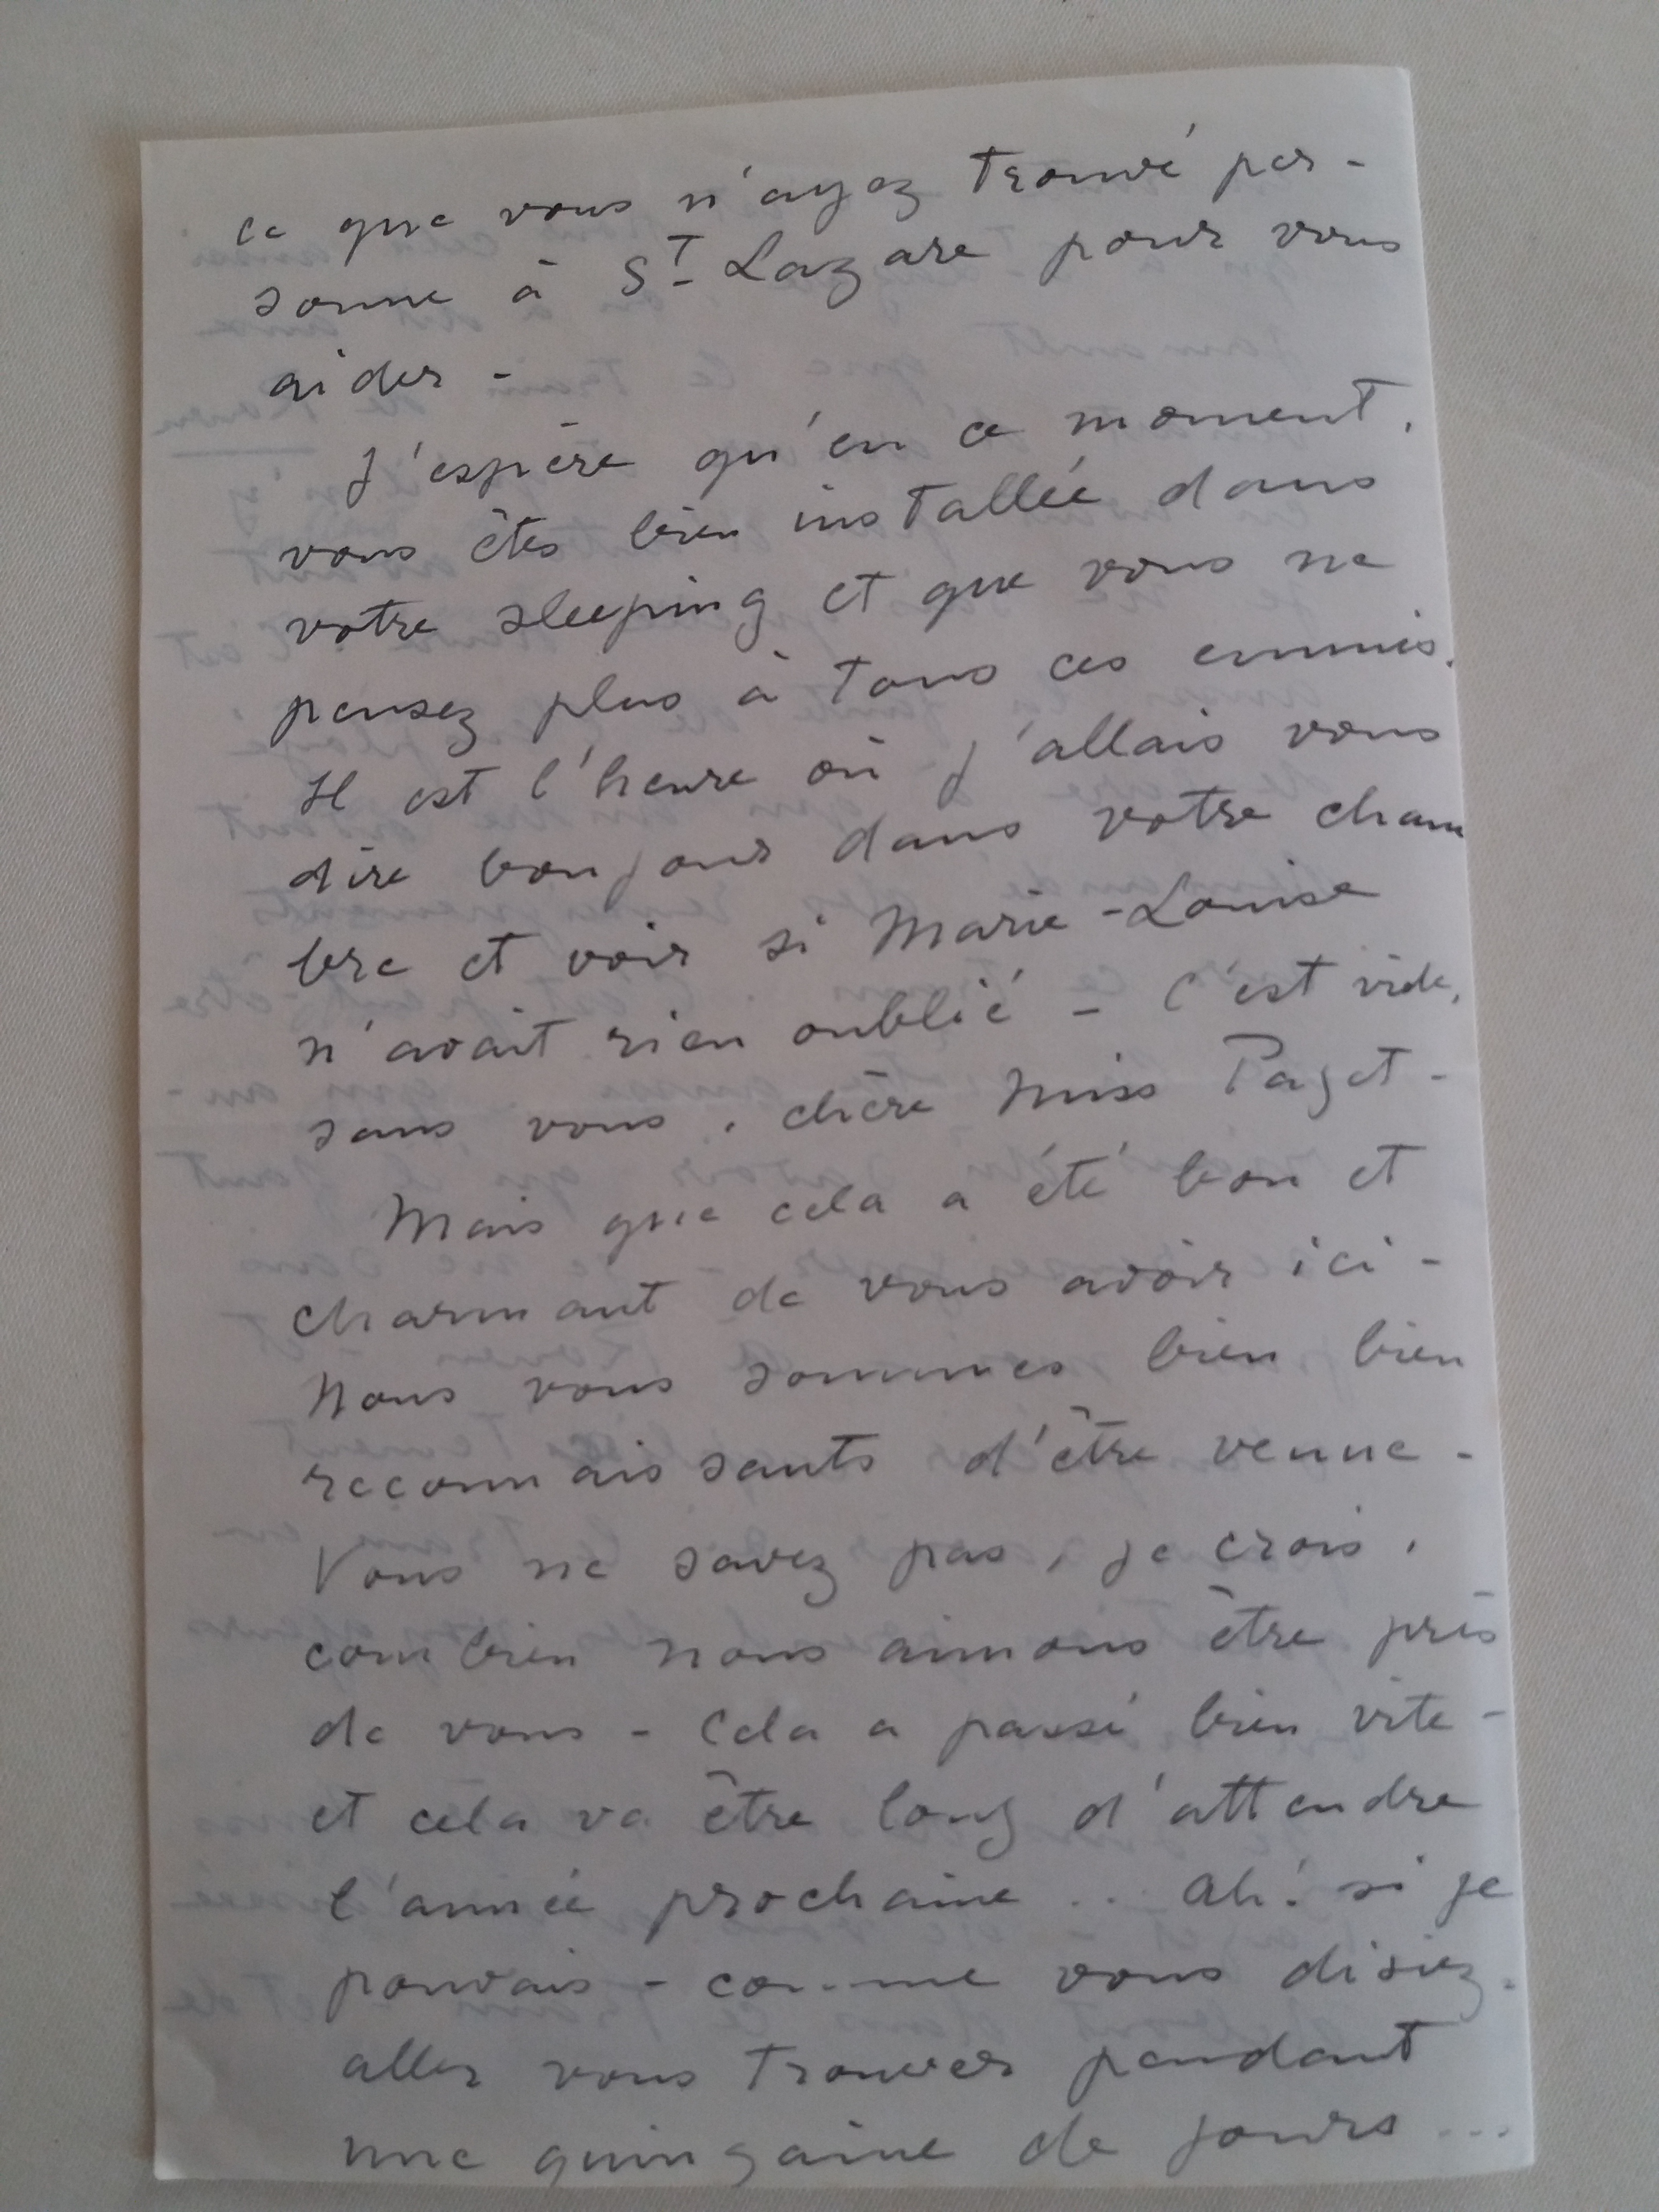 ce que vous n'ayez trouvé per-
sonne à St Lazare pour vous
aider -
J'espère qu'en ce moment,
vous êtes bien installée dans
votre sleeping et que vous ne
pensez plus à tous ces ennuis.
Il est l'heure où j'allais vous
dire bonjour dans votre cham
bre et voir si Marie-Louise
n'avait rien oublié - C'est vide,
sans vous, chère Miss Paget -
Mais que cela a été bon et
charmant de vous avoir ici -
Nous vous sommes bien bien
reconnaissants d'être venue -
Vous ne savez pas, je crois,
combien nous aimons être près
de vous - Cela a passé bien vite -
et cela va être long d'attendre
l'année prochaine .. Ah! si je
pouvais - comme vous disiez -
aller vous trouver pendant
une quinzaine de jours ...